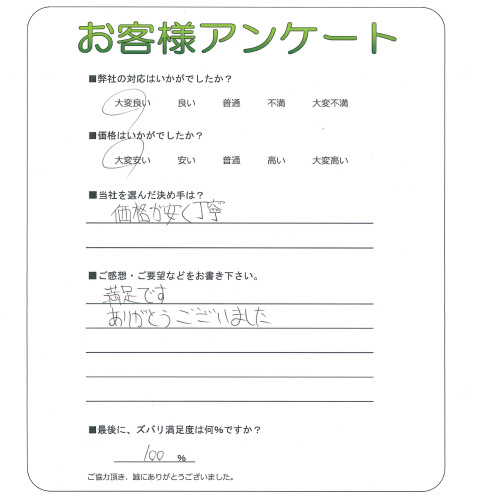 お客様アンケート
■弊社の対応はいかがでしたか？
大変良い 良い 普通 不満 大変不満
■価格はいかがでしたか？
大変安い 安い 普通 高い 大変高い
■当社を選んだ決め手は？
価格が安く丁寧
■ご感想・ご要望などをお書き下さい。
満足です
ありがとうございました
■最後に、ズバリ満足度は何%ですか？
100 %
ご協力頂き、誠にありがとうございました。